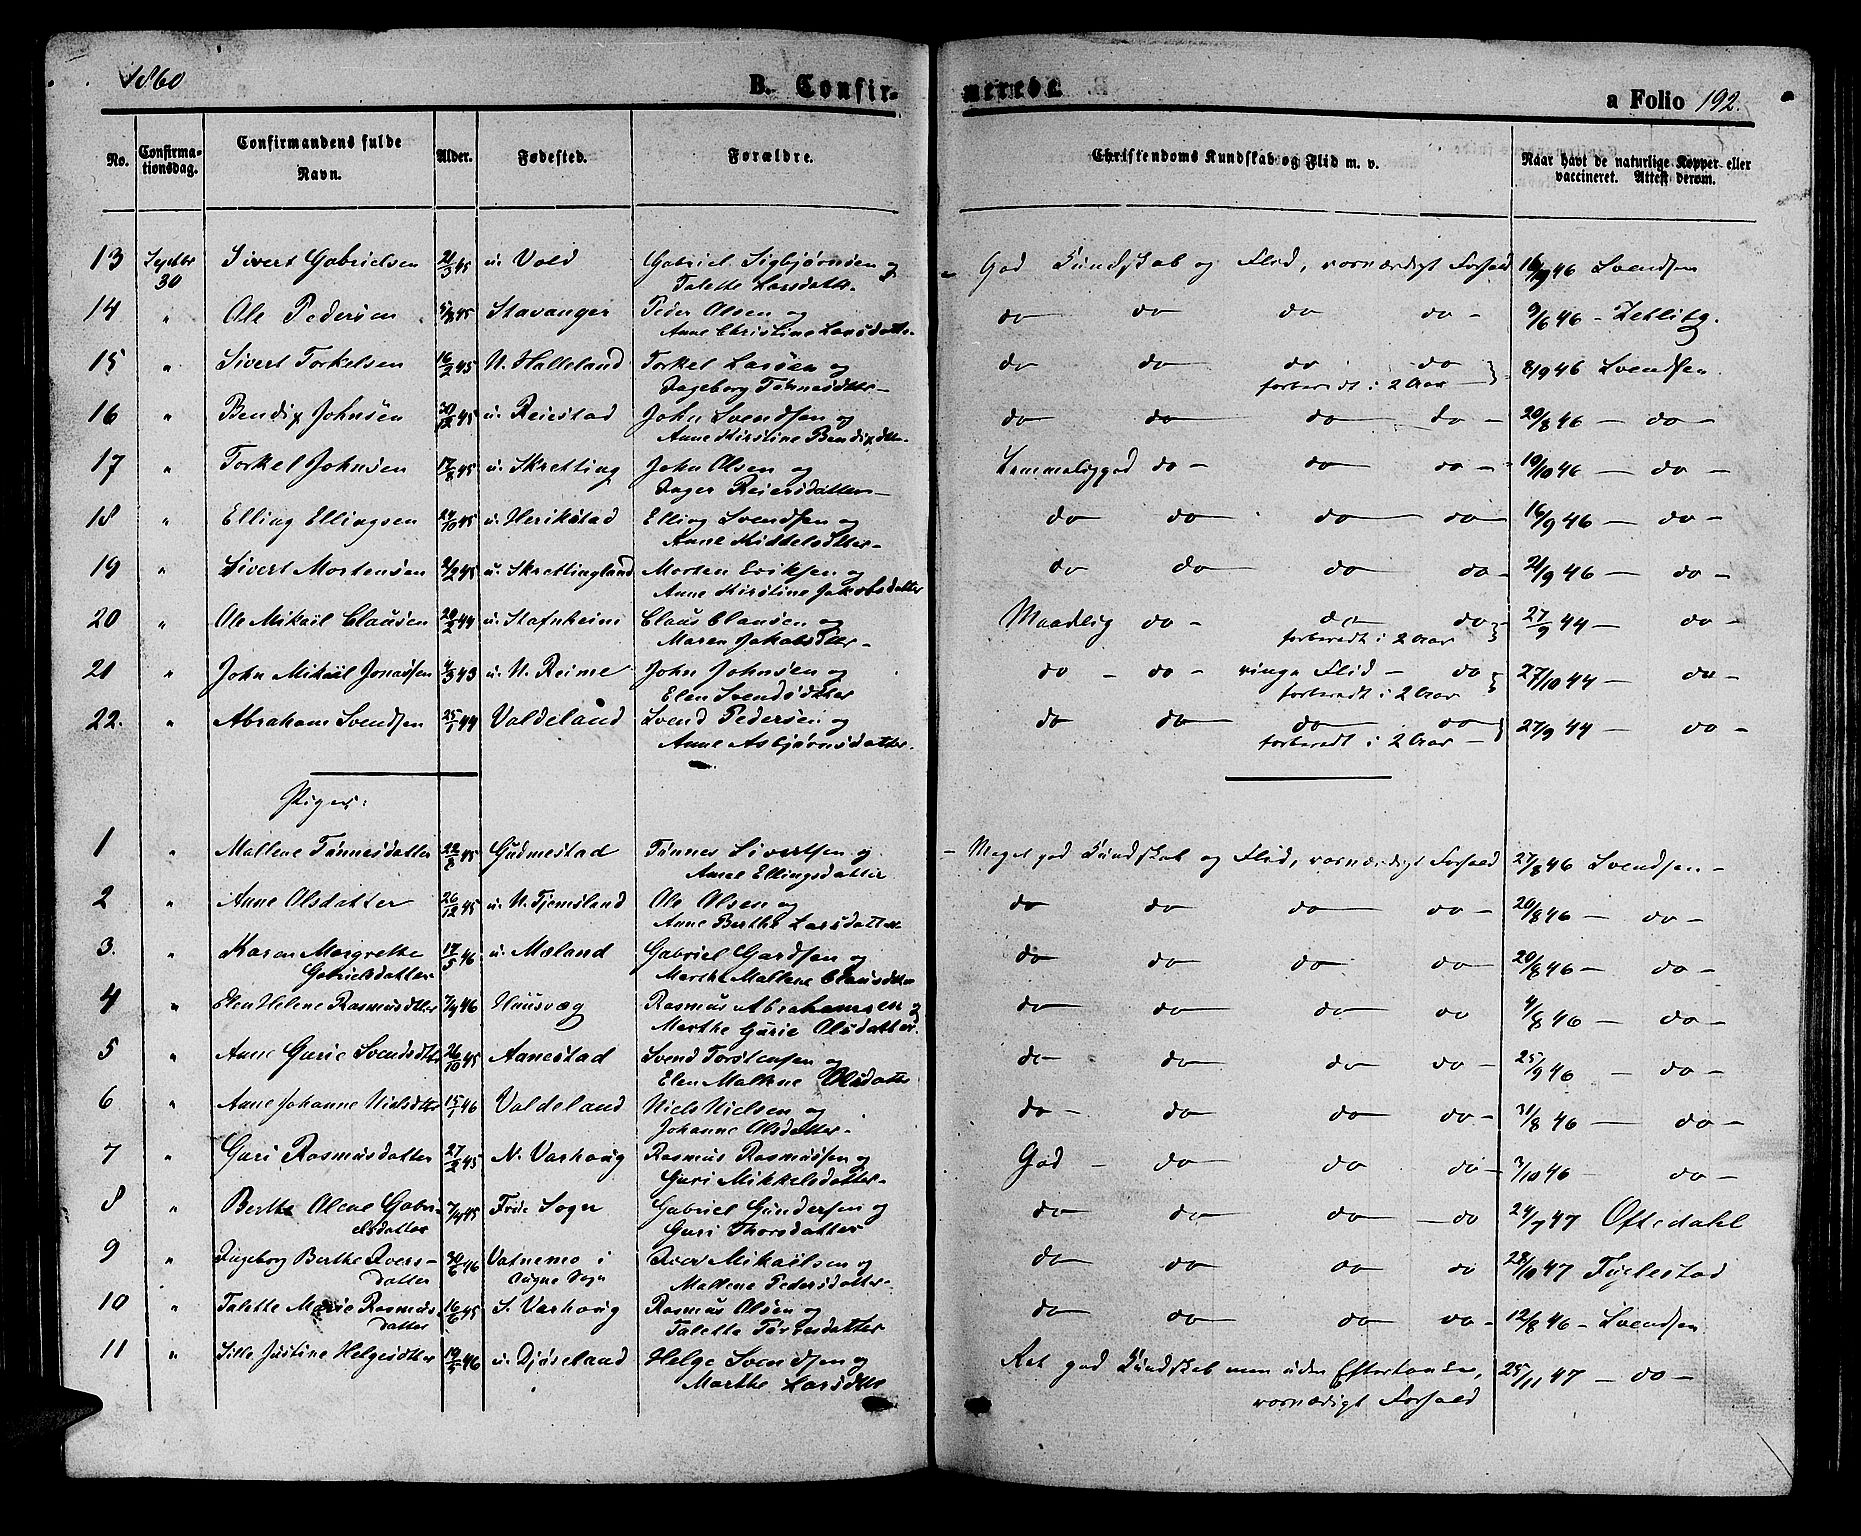 1860
B. Confirmerede.
a Folio 192.
No. Confirmationsdag. Confirmandens fulde Navn. Alder. Fødested. Forældre. Christendoms Kundskab og Flid m. v. Naar havt de naturlige Kopper eller vaccineret. Attest derom.
13 Septbr 30 Sivert Gabrielsen 21/3 45 u. Vold Gabriel Sigbjørnsen og Talette Larsdatter - God Kundskab og Flid, værdigt Forhold 16/9 46 Svendsen
14 " Ole Pedersen 5/8 45 Stavanger Peder Olsen og Anne Christine Larsdatter do do do do - 9/6 46 - Zetlitz.
15 " Sivert Torkelsen 16/2 45 N. Halleland Torkel Larsen og Ingeborg Tønnesdtter - do do do do forberedt i 2 Aar 8/9 46 Svendsen.
16 " Bendix Johnsen 30/12 45 u. Reiestad John Svendsen og Anne Kirstine Bendixdtter do do do do - 20/8 46 - do -
17 " Torkel Johnsen 17/8 45 u. Skretting John Olsen og Inger Reiersdatter - Temmelig god do - do do - 10/10 46 - do -
18 " Elling Ellingsen 24/10 45 u. Herikstad Elling Svendsen og Anne Kiddelsdtter - do do do do 16/9 46 - do -
19 " Sivert Mortensen 8/2 45 u. Skrettingland Morten Eriksen og Anne Kirstine Jakobsdatter do do do do - 21/9 46 - do -
20 " Ole Mikail Clausen 20/2 44 u. Stafnheim Claus Clausen og Maren Jakobsdtter - Maadelig do - do do forberedt i 2 Aar 27/9 44 - do -
21 " John Mikail Jonassen 4/3 43 u. N. Reime John Johnsen og Elen Svendsdtter do - do - ringe Flid - do forberedt i 2 Aar 27/10 44 - do -
22. " Abraham Svendsen 25/1 44 Valdeland Svend Pedersen og Anne Asbjørnsdatter. do do do do forberedt i 2 Aar - 27/9 44 - do -
Piger:
1 " Mallene Tønnesdatter 22/8 45 Gudmestad Tønnes Sivertsen og Anne Ellingsdatter - Meget god Kundskab og Flid, værdigt Forhold 27/8 46 Svendsen -
2 " Anne Olsdatter 26/12 45 u. N. Tjemsland Ole Olsen og Anne Berthe Larsdatter do do do do - 20/8 46 - do -
3. " Karen Margrethe Gabrielsdatter 17/5 46 u. Mæland Gabriel Gardsen og Marthe Mallene Clausdtter do do do do 20/8 46 - do -
4 " Elen Helene Rasmusdtter 7/4 46 Huusvæg Rasmus Abrahamsen og Marthe Gurie Olsdatter. do do do do 4/8 46 - do -
5 " Anne Gurie Svendsdtter 26/10 45 Aanestad Svend Torstensen og Elen Malene Olsdatter do do do do 25/9 46 - do -
6 " Anne Johanne Nielsdtter 15/1 46 Valdeland Niels Nielsen og Johanne Olsdatter - do - do do do - 31/8 46 - do -
7 " Guri Rasmusdatter 27/2 45 N. Varhoug Rasmus Rasmussen og Guri Mikkelsdatter - God - do do do - 3/10 46 do -
8 " Berthe Olene Gabrielsdatter 7/4 45 Frue Sogn Gabriel Gundersen og Guri Thorsdatter do do do - do 24/7 47 Oftedahl
9 " Ingeborg Berthe Iversdatter 30/6 46 Vatnemo i Augne Sogn Iver Mikailsen og Mallene Pedersdatter - do do do do 28/10 47 Fuglestad
10 " Talette Marie Rasmusdatter 16/6 45 S. Varhoug Rasmus Olsen og Talette Torresdatter do do do do - 12/8 46 - Svendsen
11 " Sille Justine Helgesdtter 19/5 46 u. Djøseland Helge Svendsen og Marthe Larsdtter Ret god Kundskab men uden Eftertanke, værdigt Forhold 25/11 47 - do -